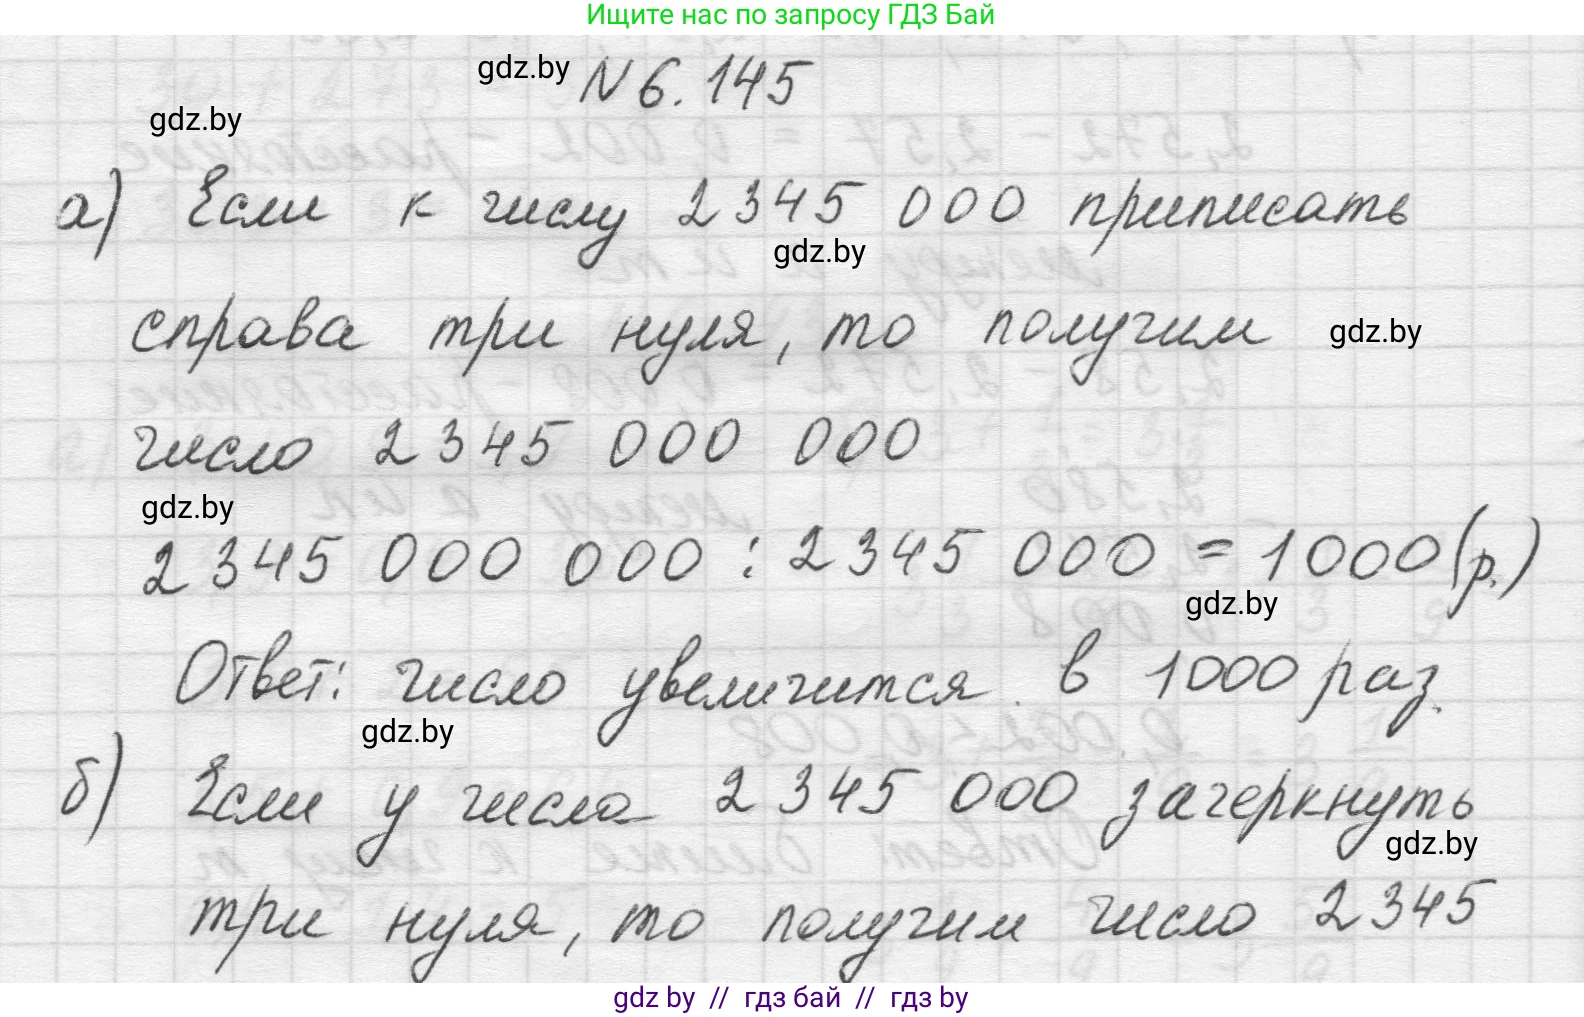 Ищите нас по запросу ГДЗ Бай
gdz.by N 6.145
gdz.by
а) Если к числу 2 345 000 приписать
gdz.by
справа три нуля, то получим gdz.by
число 2 345 000 000
gdz.by
2 345 000 000 : 2 345 000 = 1000 (р.)
gdz.by
Ответ: число увеличится в 1000 раз.
gdz.by
б) Если у числа 2 345 000 зачеркнуть
gdz.by
три нуля, то получим число 2 345
gdz by // гдз бай // gdz by